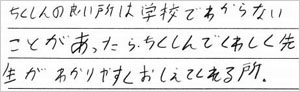 ちくしんの良い所は学校でわからない
ことがあったら、ちくしんでくわしく先
生がわかりやすくおしえてくれる所。